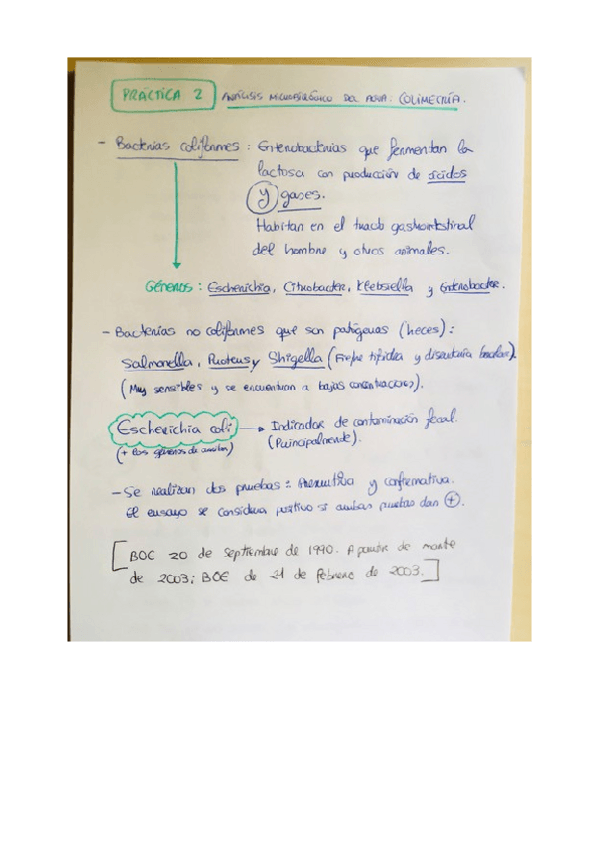 PRÁCTICA 2 ANÁLISIS MICROBIOLÓGICO DEL AGUA: COLIMETRÍA.
- Bacterias coliformes: Enterobacterias que fermentan la
lactosa con producción de ácidos
y gases.
Habitan en el tracto gastrointestinal
del hombre y otros animales.
Géneros: Escherichia, Citrobacter, Klebsiella y Enterobacter.
- Bacterias no coliformes que son patógenas (heces):
Salmonella, Proteus y Shigella (Fiebre tifoidea y disentería bacilar).
(Muy sensibles y se encuentran a bajas concentraciones).
Escherichia coli → Indicador de contaminación fecal.
(+ los géneros de arriba) (Principalmente).
- Se realizan dos pruebas: Presuntiva y confirmativa.
El ensayo se considera positivo si ambas pruebas dan +.
[BOC 20 de Septiembre de 1990. A partir de
de 2003; BOE de 21 de febrero de 2003.]